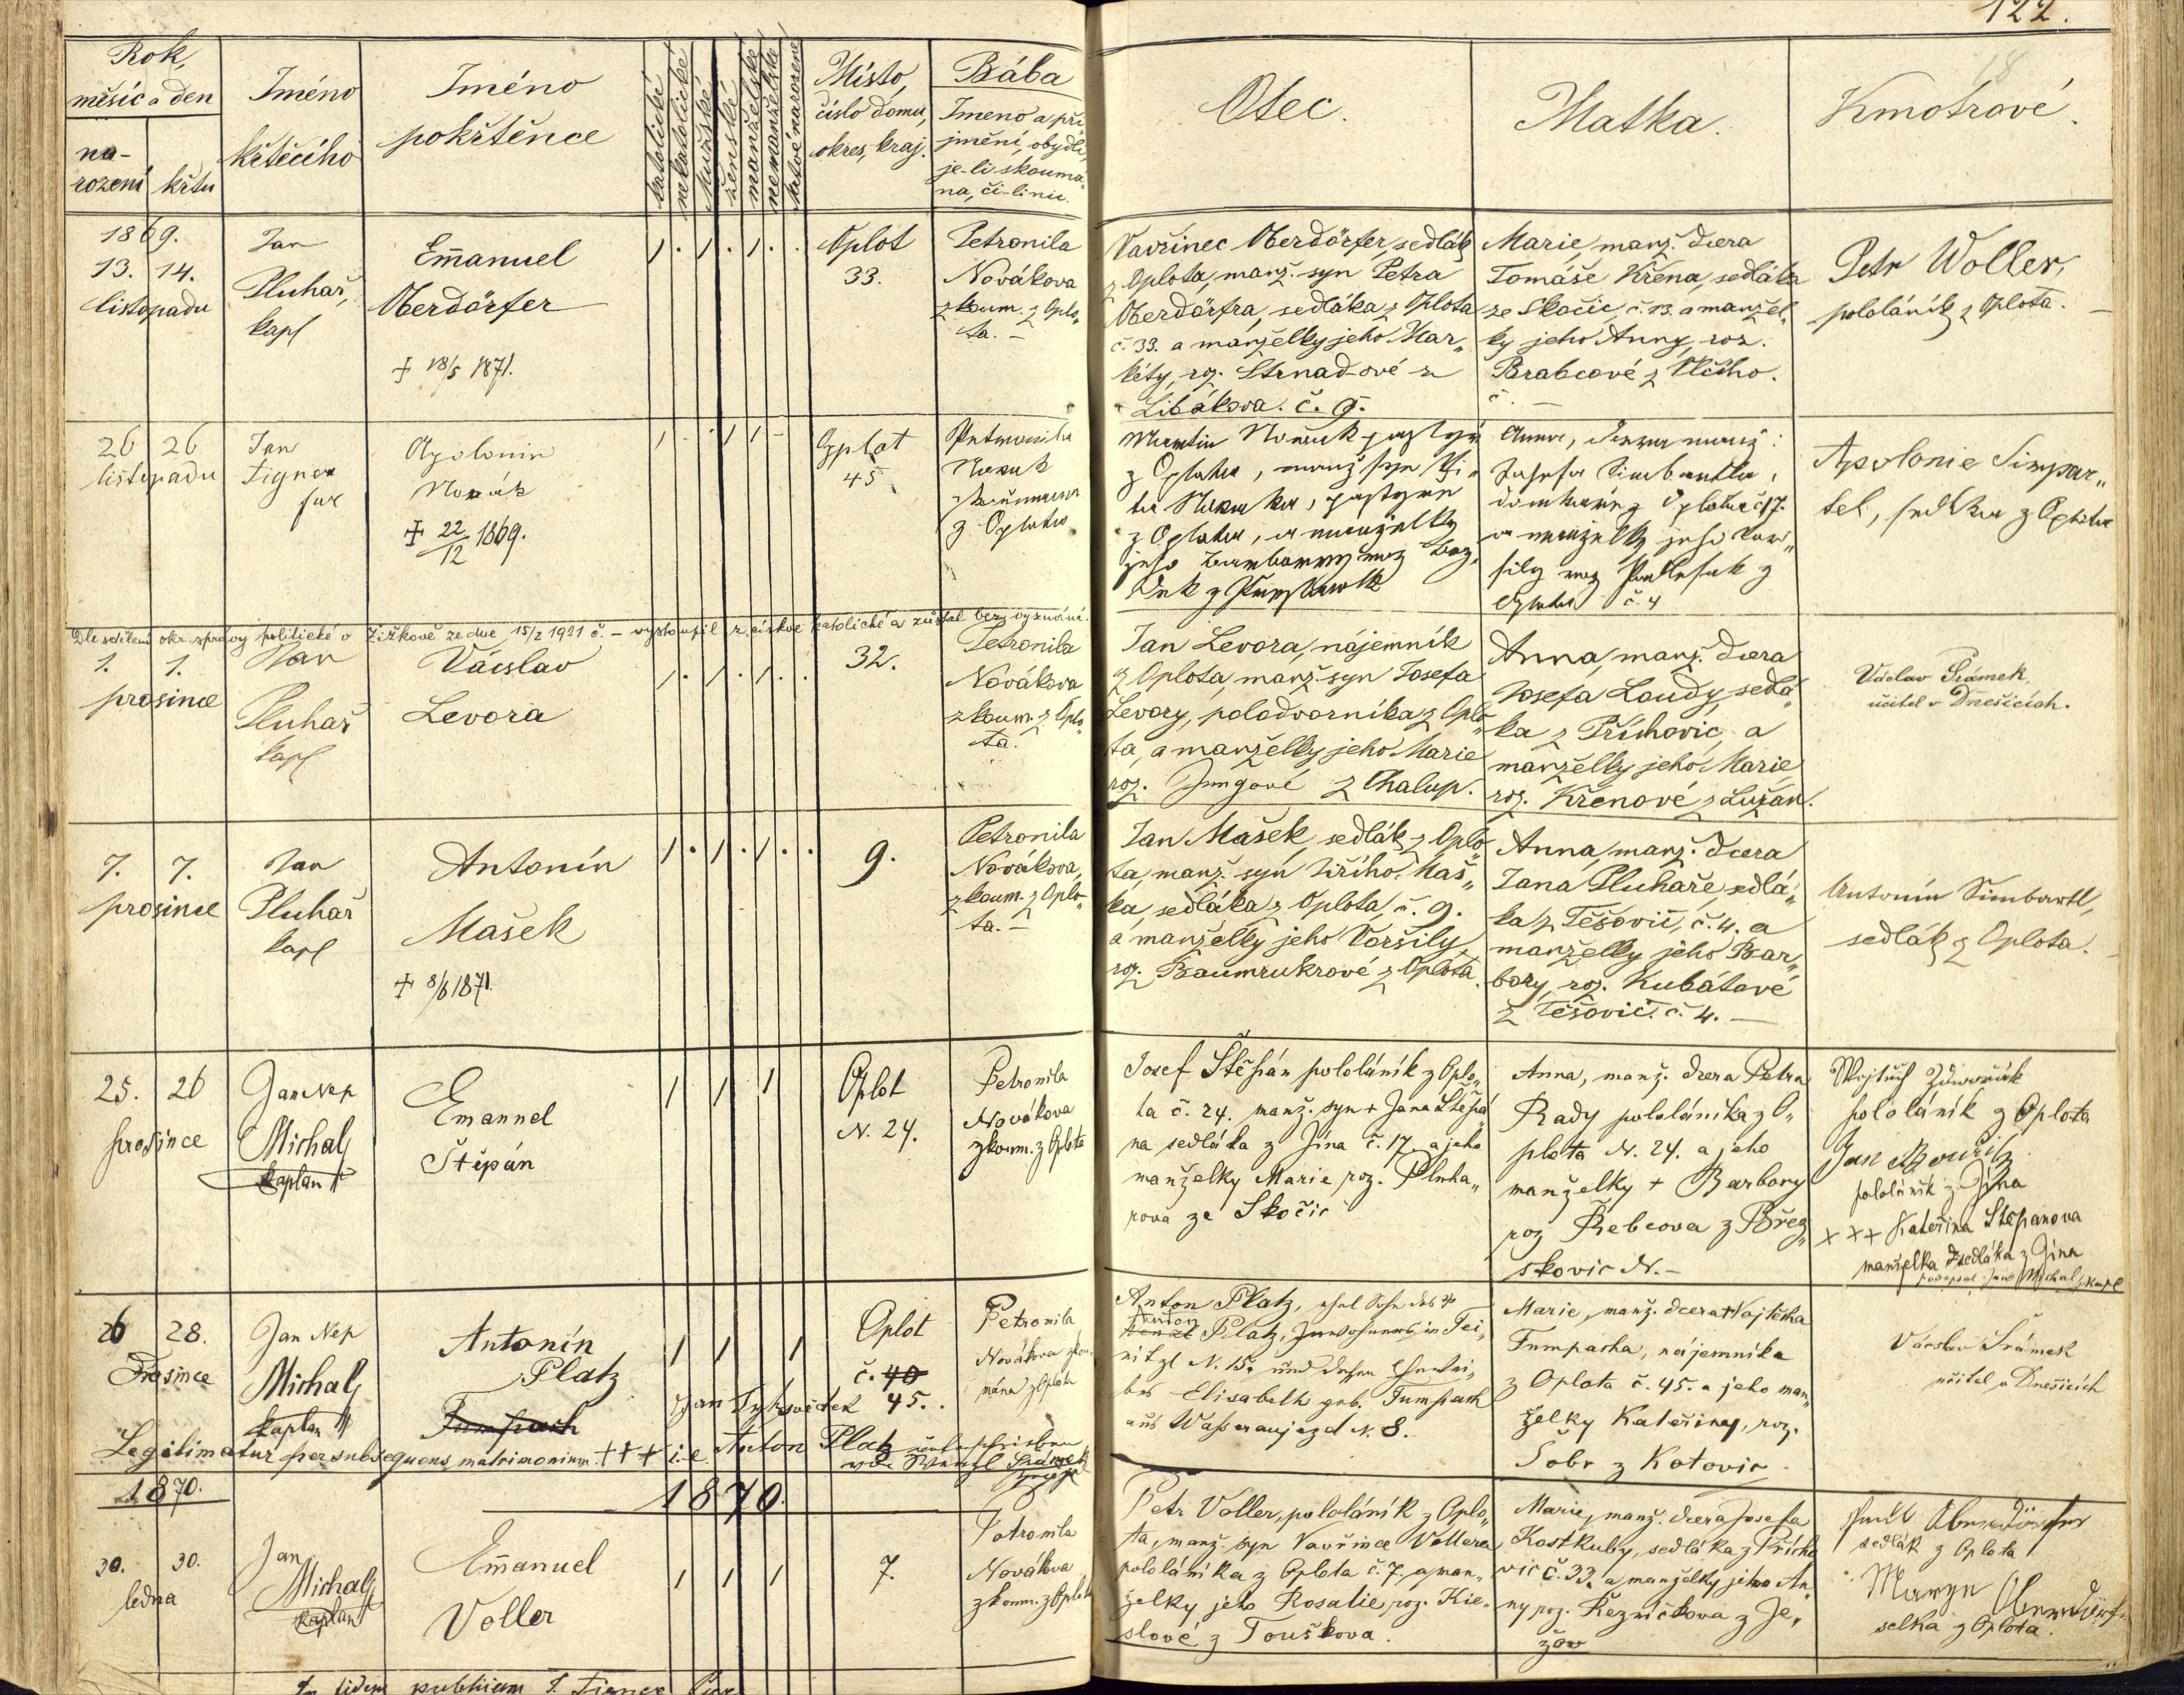 122.
Rok,
měsíc a den
na-
rození
křtu
Jméno
křtěcího
Jméno
pokřtěnce
katolické
nekatolické
mužské
ženské
manželské
nemanželské
mrtvě narozené
Místo,
číslo domu,
okres, kraj.
Bába
Jmeno a pří-
jmění, obydlí,
je-li zkoumá-
na, či-li nic.
Otec.
Matka.
Kmotrové.
1869.
13. 14.
listopadu
Jan
Pluhař,
kapl
Emanuel
Oberdörfer
+ 18/5 1871.
1 . 1 . 1 . .
Oplot
33.
Petronila
Nováková
zkoum. z Oplo„
ta. –
Vavřinec Oberdörfer, sedlák
z Oplota, manž. syn Petra
Oberdörfra, sedláka z Oplota
č. 33. a manželky jeho Mar„
kéty, roz. Strnadové z
Libákova. č. 9.
Marie, manž. dcera
Tomáše Křena, sedláka
ze Skočic, č. 13. a manžel„
ky jeho Anny, roz.
Brabcové z Vlčího.
č. –
Petr Woller,
pololáník z Oplota. –
26 26
listopadu
Jan
Tigner
far
Apolonia
Novák
+ 22/12 1869.
1 . 1 1 –
Opplot
45
Petronila
Novak
z Oplota
Martin Novak pastýř
z Oplota, manž syn
z Oplota, a manželky
jeho Barbory roz
Anna, dcera manž:
Josefa Simbartla,
domkáře z Oplota č 17.
a manželky jeho Vor„
šily roz Podlesak z
Oplota č. 4
Apolonie Simpar„
tel, sedlka z Oplota
Dle sdělení okr. správy politické v Žižkově ze dne 15/2 1921 č. – vystoupil z církve katolické a zůstal bez vyznání.
1. 1.
prosince
Jan
Pluhař
kapl
Václav
Levora
1 . 1 . 1 . .
32.
Petronila
Nováková
zkoum. z Oplo„
ta.
Jan Levora, nájemník
z Oplota, manž. syn Josefa
Levory, polodvorníka z Oplo„
ta, a manželky jeho Marie
roz. Jungové z Chalup.
Anna, manž. dcera
Josefa Loudy, sedlá„
ka z Příchovic, a
manželky jeho Marie,
roz. Křenové z Lužan.
Václav Šrámek,
učitel v Dnešicích.
7. 7.
prosince
Jan
Pluhař
kapl
Antonín
Mašek
+ 8/6 1871.
1 . 1 . 1 . .
9.
Petronila
Nováková,
zkoum. z Oplo„
ta. –
Jan Mašek, sedlák z Oplo„
ta, manž. syn Jiřího Maš„
ka, sedláka z Oplota, č. 9.
a manželky jeho Voršily,
roz. Baumrukrové z Oplota.
Anna, manž. dcera
Jana Pluhaře, sedlá„
ka z Těšovic, č. 4. a
manželky jeho Bar„
bory, roz. Kubátové
z Těšovic č. 4. –
Antonín Simbartl,
sedlák z Oplota.
25. 26
prosince
Jan Nep
Michal
kaplan
Emanuel
Štěpán
1 1 1
Oplot
N. 24.
Petronila
Nováková
zkoum. z Oplota
Josef Štěpán pololáník z Oplo„
ta č. 24. manž. syn + Jana Štěpá„
na sedláka z Jína č. 17. a jeho
manželky Marie roz. Pluha„
řova ze Skočic
Anna, manž. dcera Petra
Rady pololáníka z O„
plota N. 24. a jeho
manželky + Barbory
roz Rebcova z Břez„
skovic N. –
Wojtěch Zdvořák
pololáník z Oplota
Jan
pololáník z Jína
+++ Kateřina Štěpanova
manželka sedláka z Jína
podepsal Jan Michal, kapl
26 28.
Prosince
Jan Nep
Michal
kaplan
Antonín
Platz
Tumpach
1 1 1
Oplot
č. 40
45.
Jan Tyk svědek
Petronila
Nováková zkou-
mána z Oplota
Anton Platz, ehel Sohn des +
Anton
Wenzl Platz, Inwohners in Tei„
nitzl N. 15. und dessen Ehewei„
bes Elisabeth geb. Tumpach
aus Wasseraujezd N. 8.
Marie, manž. dcera + Vojtěcha
Tumpacha, nájemníka
z Oplota č. 45. a jeho man„
želky Kateřiny, roz.
Šobr z Kotovic.
Václav Šrámek
učitel v Dnešicích
Legitimatur per subsequens matrimonium. +++ i.e. Anton Platz unterschrieben
von Wenzl Šrámek
1870.
1870.
30. 30.
ledna
Jan
Michal
kaplan
Emanuel
Voller
1 1 1
7.
Petronila
Nováková
zkoum. z Oplota
Petr Voller, pololáník z Oplo„
ta, manž. syn Vavřince Vollera
pololáníka z Oplota č. 7. a man„
želky jeho Rosalie, roz. Kie„
slové z Touškova.
Marie, manž. dcera Josefa
Kostkuby, sedláka z Přícho
vic č. 33. a manželky jeho An„
ny roz. Řezníčkova z Je„
žov
sedlák z Oplota
selka z Oplota.
In fidem publicam J. Tigner